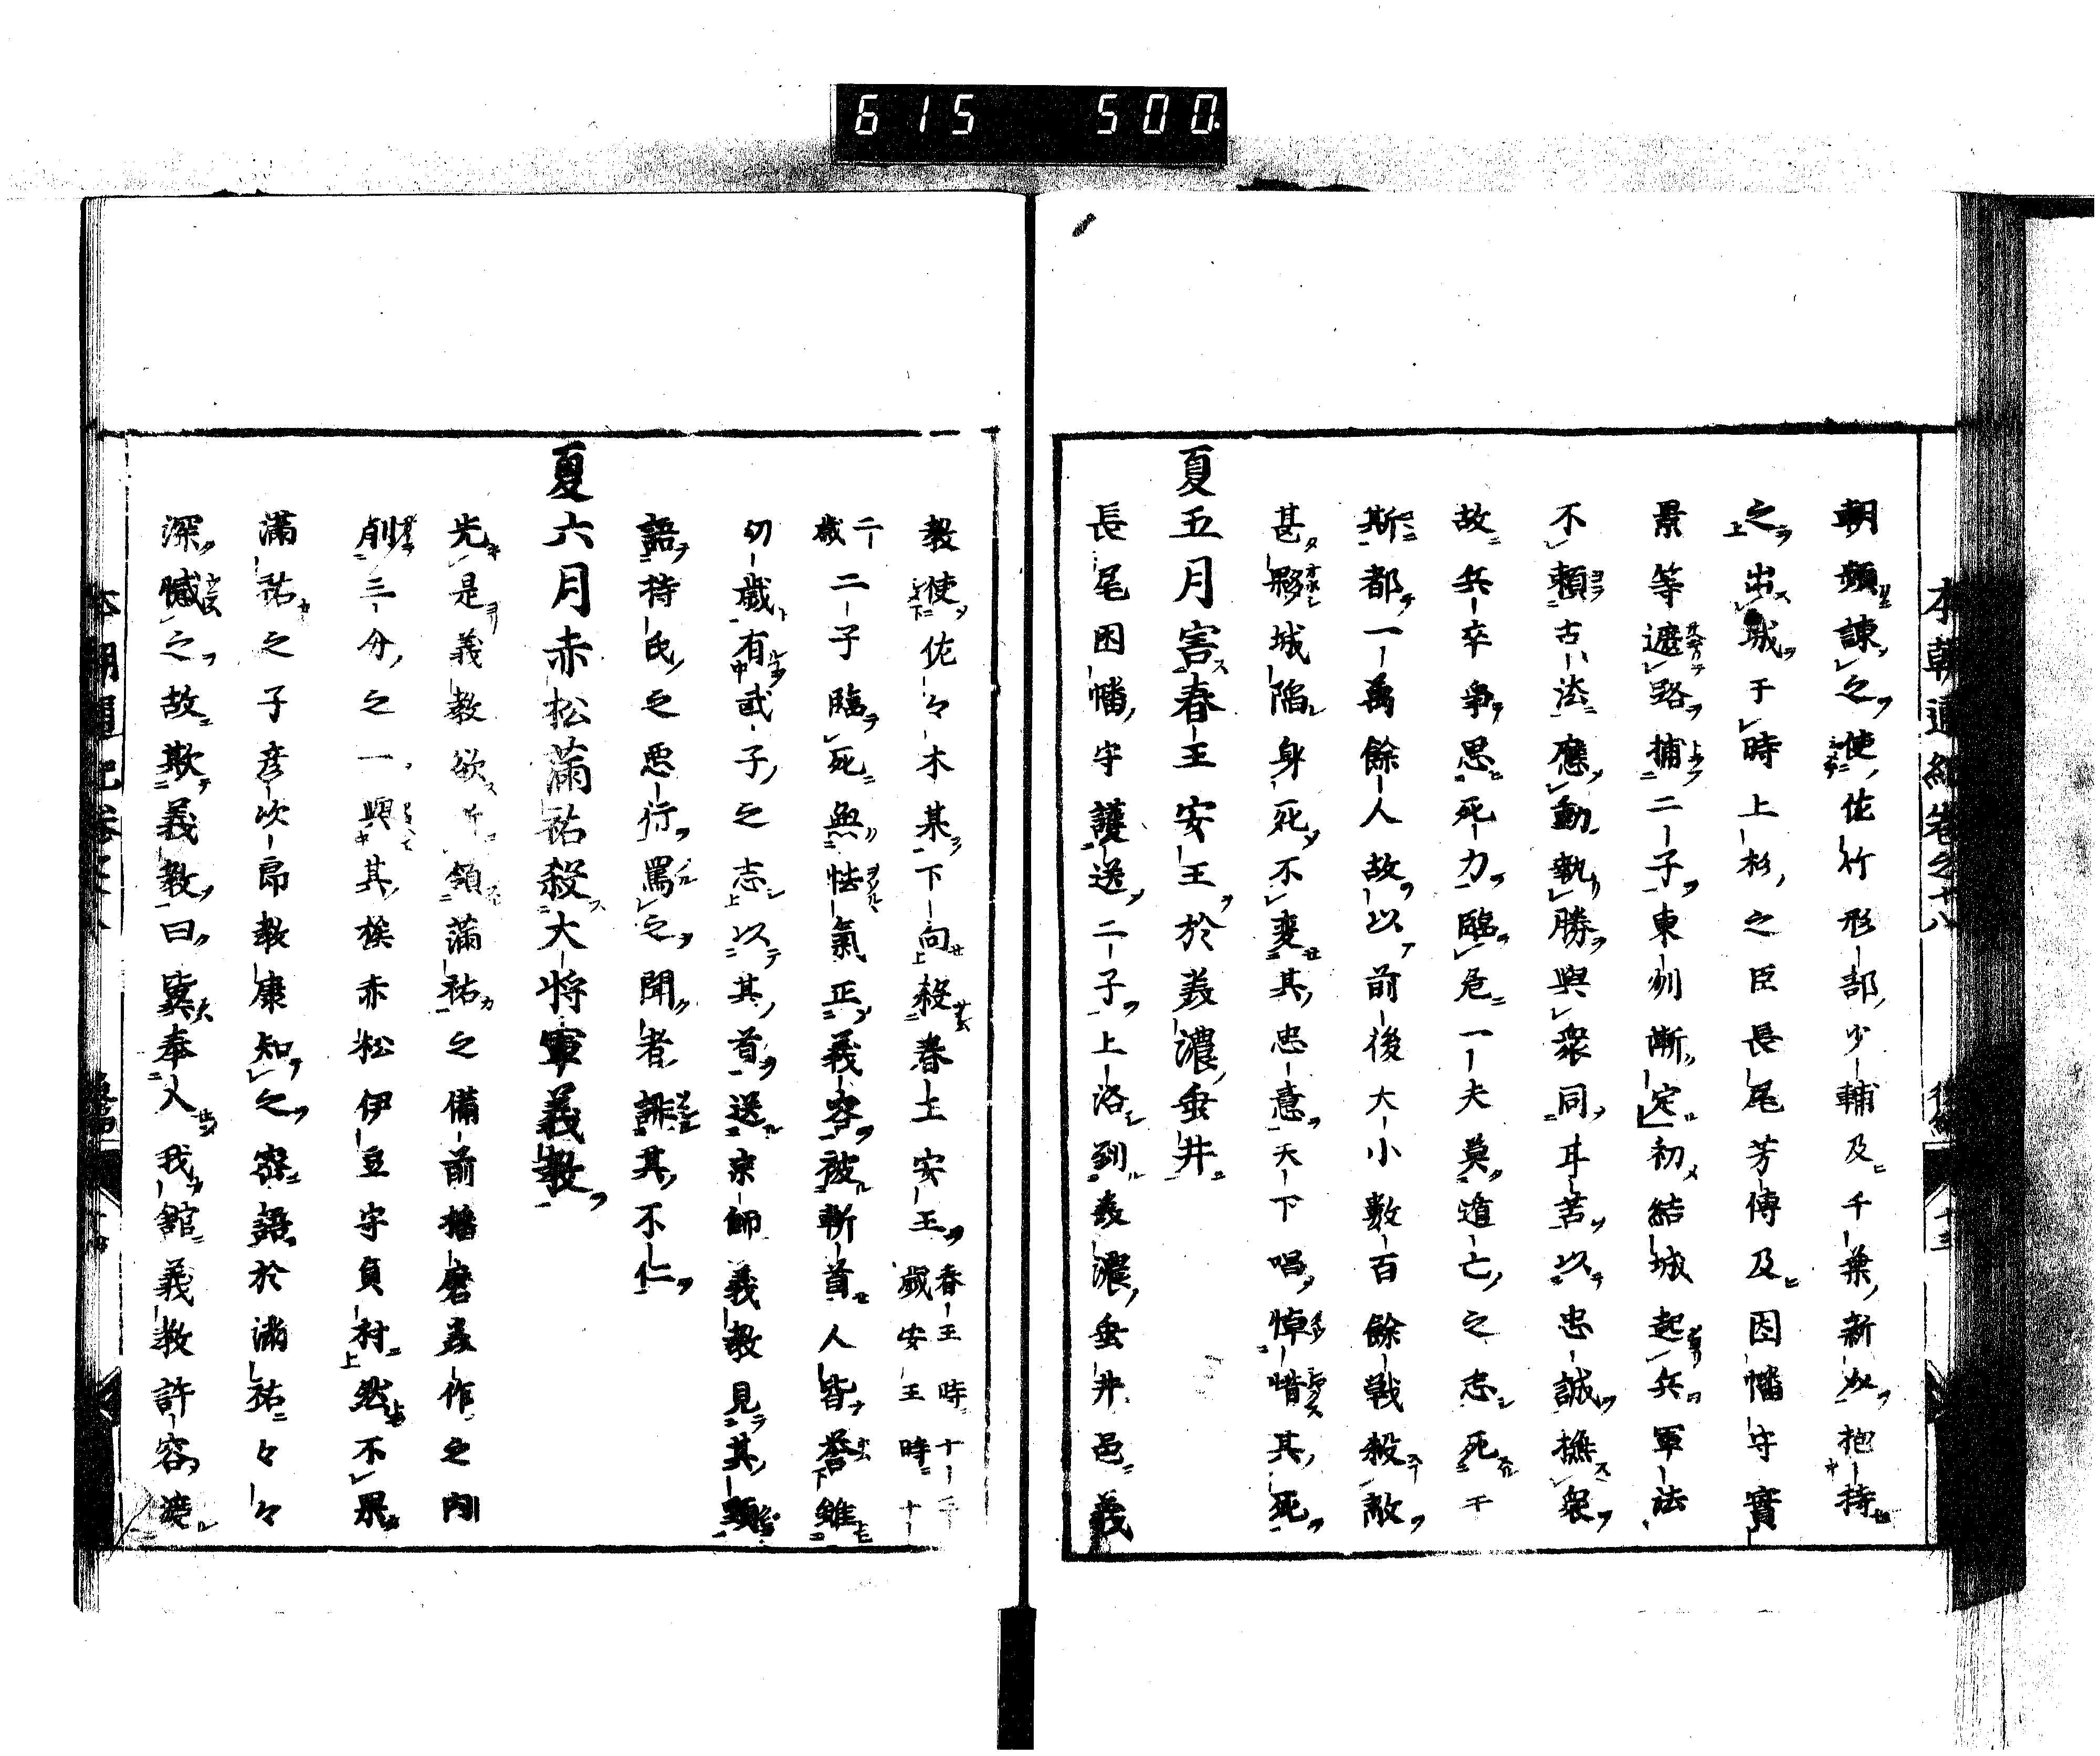 615 500
本朝通紀卷之十八 後編 十三
朝頻諌之使佐竹形部少輔及千葉新助抱持
之出城于時上杉之臣長尾芳傳及因幡守實
景等遮路捕二子東州漸定初結城起兵軍法
不頼古法應動執勝與衆同耳苦以忠誠撫衆
故兵卒爭思死力臨危一夫莫遁亡之志死于
斯都一萬餘人故以前後大小數百餘戦殺敵
甚夥城陥身死不変其忠意天下唱悼惜其死
夏五月害春王安王於美濃垂井
長尾因幡守護送二子上洛到美濃垂井邑義
教使佐々木某下向殺春王安王春王時十二
歳安王時十一
歳二子臨死無怯氣正義容被斬首人皆誉雖
幼歳有武子之志以其首送京師義教見其頸
語持氏之悪行罵之聞者譏其不仁
夏六月赤松満祐殺大将軍義教
先是義教欲所領満祐之備前播磨美作之内
削三分之一與其族赤松伊豆守貞村然不果
満祐之子彦次郎教康知之密語於満祐々々
深憾之故欺義教曰冀奉入我舘義教許容